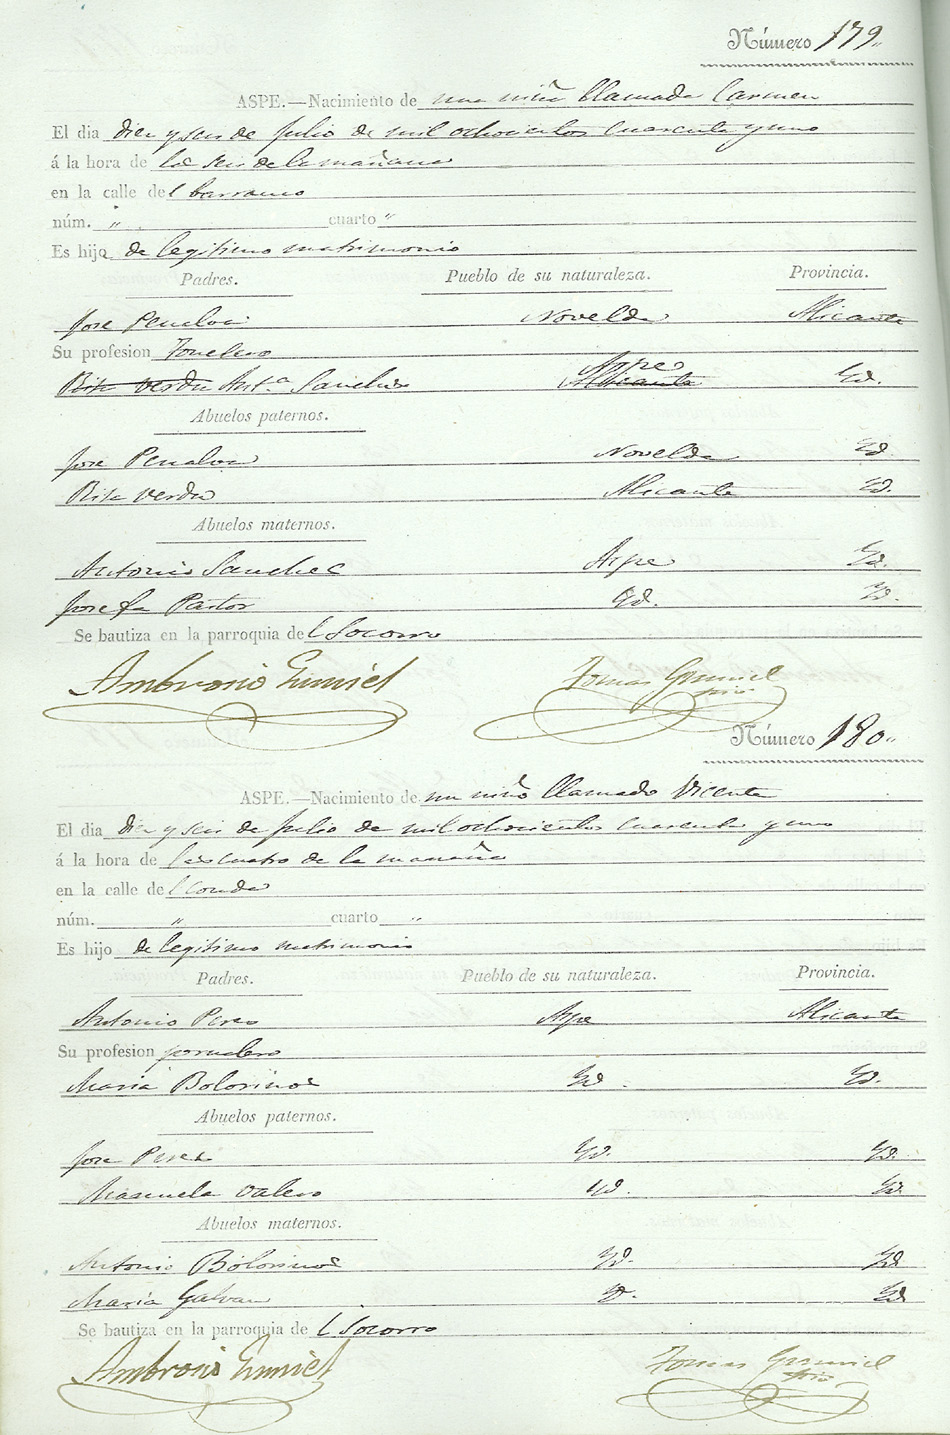 Número 179.
ASPE.—Nacimiento de una niña llamada Carmen
El dia diez y seis de Julio de mil ochocientos cuarenta y uno
á la hora de las seis de la mañana
en la calle del barranco
núm. " cuarto "
Es hija de legitimo matrimonio
Padres. Pueblo de su naturaleza. Provincia.
Jose Penalva Novelda Alicante
Su profesion Tonelero
Rita Verdu Ant.ª Sanches Alicante Aspe Yd.
Abuelos paternos.
Jose Penalva Novelda Yd
Rita Verdu Alicante Yd.
Abuelos maternos.
Antonio Sanchez Aspe Yd.
Josefa Pastor Yd. Yd.
Se bautiza en la parroquia del Socorro
Ambrosio Gumiel Tomas Gumiel
srio
Número 180.
ASPE.—Nacimiento de un niño llamado Vicente
El dia diez y seis de Julio de mil ochocientos cuarenta y uno
á la hora de las cuatro de la mañana
en la calle del Conde
núm. " cuarto "
Es hijo de legitimo matrimonio
Padres. Pueblo de su naturaleza. Provincia.
Antonio Peres Aspe Alicante
Su profesion jornalero
Maria Bolorinos Yd. Yd.
Abuelos paternos.
Jose Peres Yd. Yd.
Manuela Valero Yd. Yd.
Abuelos maternos.
Antonio Bolorinos Yd. Yd
Maria Galvan Yd. Yd
Se bautiza en la parroquia del Socorro
Ambrosio Gumiel Tomas Gumiel
srio